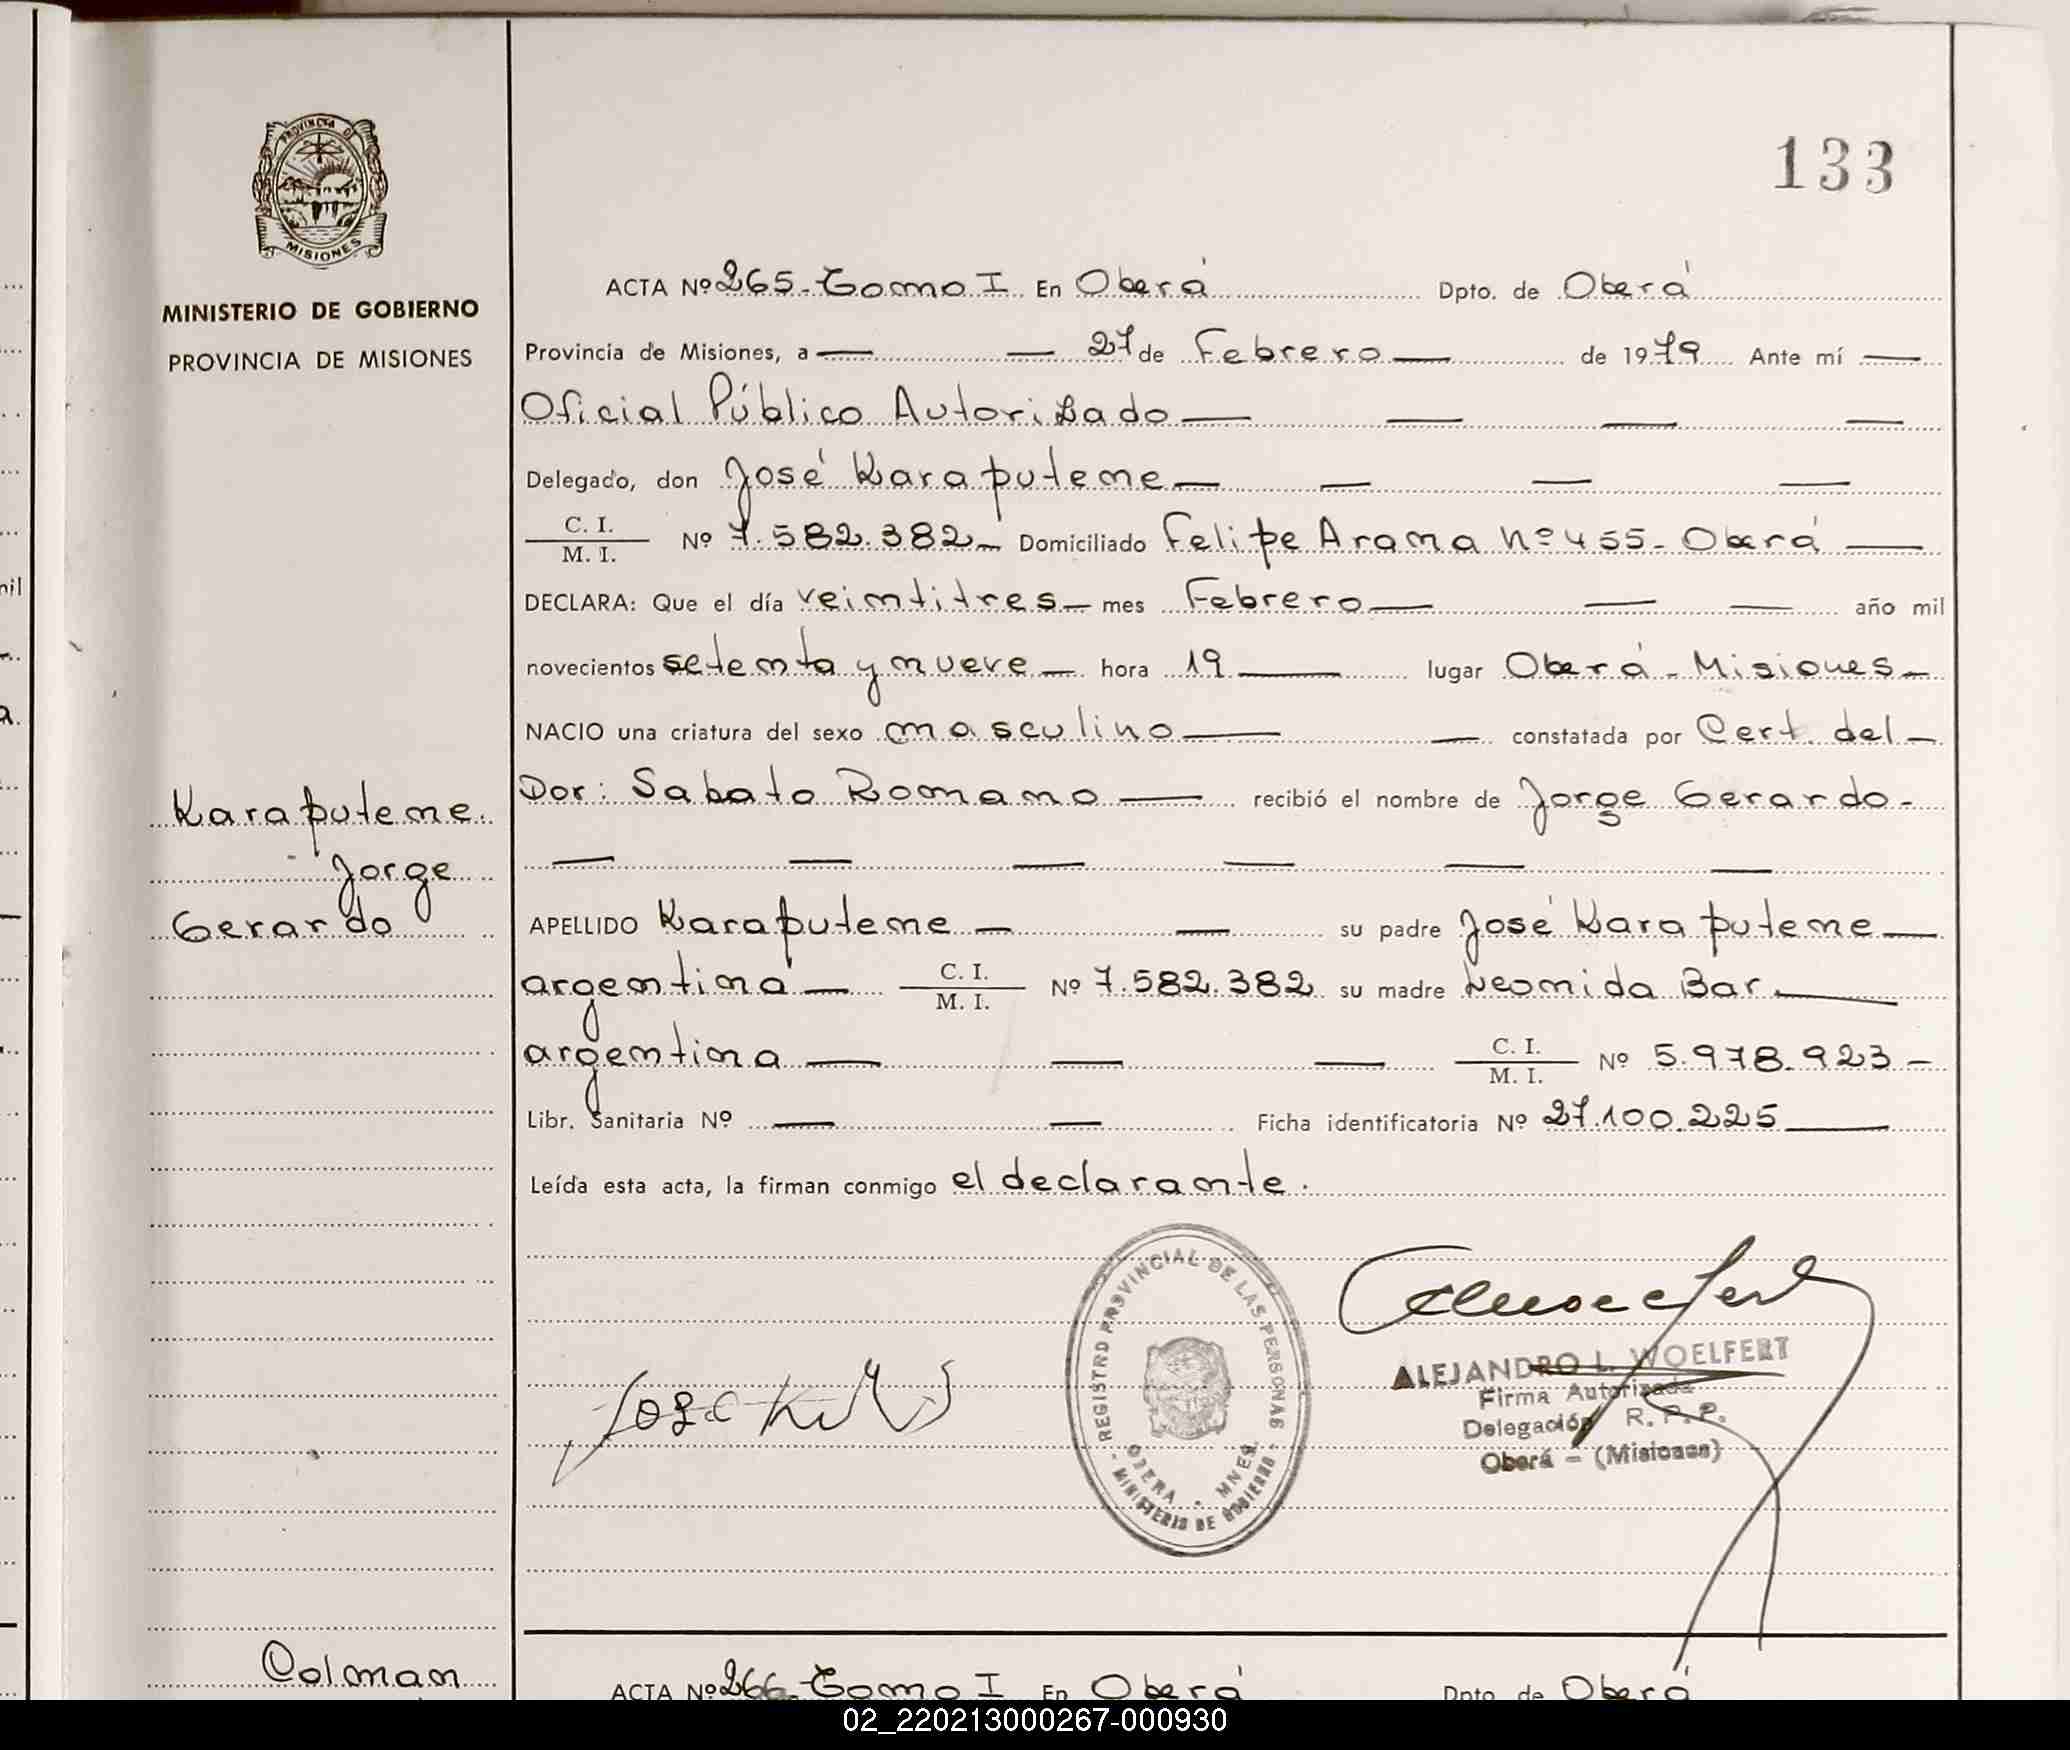 133
PROVINCIA DE
MISIONES
MINISTERIO DE GOBIERNO
PROVINCIA DE MISIONES
ACTA Nº 265 - Tomo I En Oberá Dpto. de Oberá
Provincia de Misiones, a — — 27 de Febrero — de 1979 Ante mí —
Oficial Público Autorizado — — — —
Delegado, don José Karaputene — — — —
C. I. / M. I. Nº 7.582.382 - Domiciliado Felipe Arana nº 455 - Oberá —
DECLARA: Que el día veintitres — mes Febrero — — — año mil
novecientos setenta y nueve — hora 19 — lugar Oberá - Misiones -
NACIO una criatura del sexo masculino — — constatada por Cert. del -
Dor: Sabato Romano — recibió el nombre de Jorge Gerardo -
— — — — — —
Karaputene
Jorge
Gerardo
APELLIDO Karaputene — — su padre José Karaputene —
argentina — C. I. / M. I. Nº 7.582.382 su madre Leonida Bar —
argentina — — — C. I. / M. I. Nº 5.978.923 -
Libr. Sanitaria Nº — — Ficha identificatoria Nº 27.100.225 —
Leída esta acta, la firman conmigo el declarante.
REGISTRO PROVINCIAL DE LAS PERSONAS
OBERA - MNES.
- MINISTERIO DE GOBIERNO -
José
ALEJANDRO L. WOELFERT
Firma Autorizada
Delegación R. P. P.
Oberá - (Misiones)
Colman
ACTA Nº 266 - Tomo I En Oberá Dpto. de Oberá
mil
a.
02_220213000267-000930